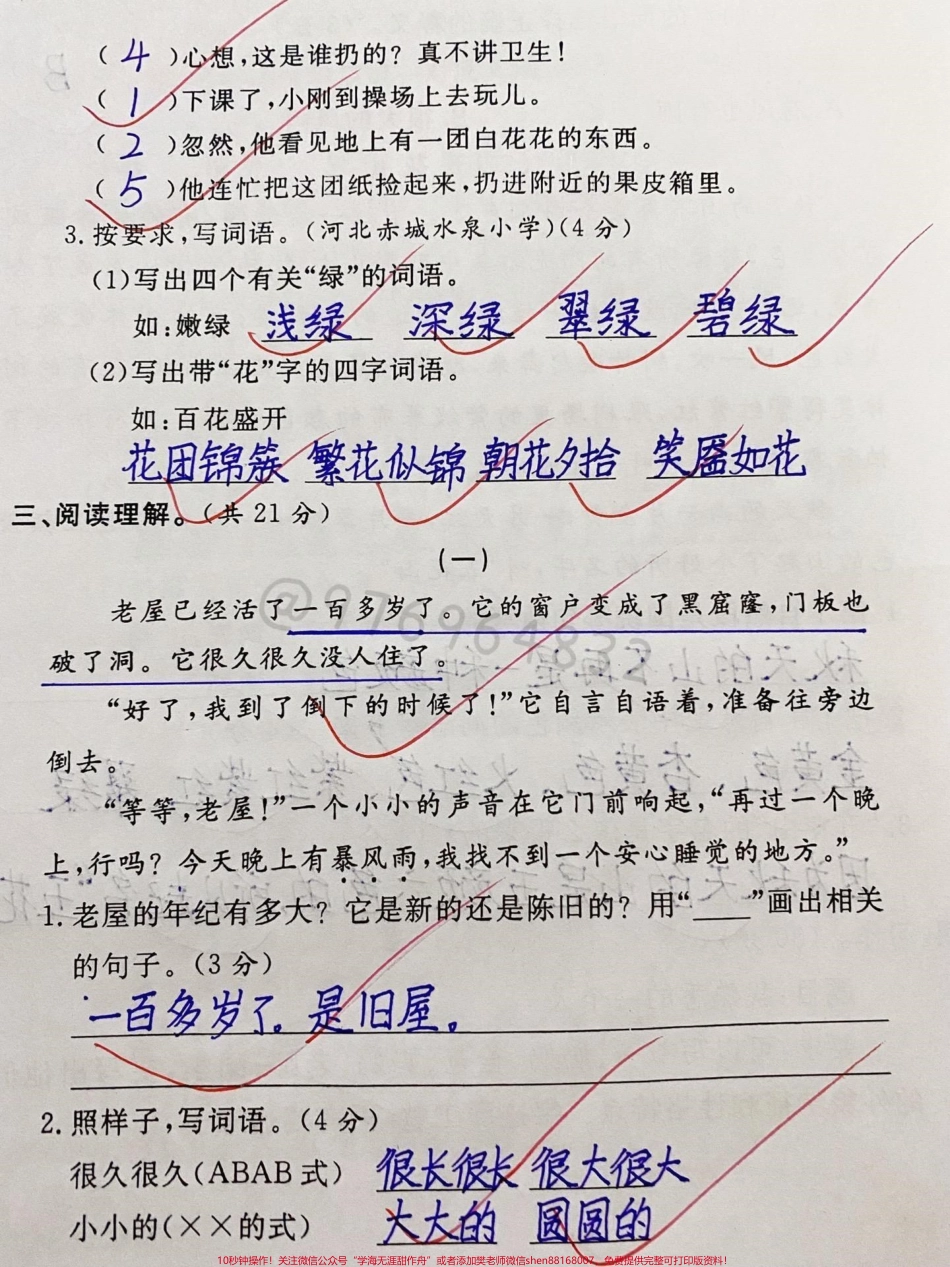 ( 4 )心想,这是谁扔的？真不讲卫生！
( 1 )下课了,小刚到操场上去玩儿。
( 2 )忽然,他看见地上有一团白花花的东西。
( 5 )他连忙把这团纸捡起来,扔进附近的果皮箱里。
3.按要求,写词语。(河北赤城水泉小学)(4分)
(1)写出四个有关“绿”的词语。
如:嫩绿 浅绿 深绿 翠绿 碧绿
(2)写出带“花”字的四字词语。
如:百花盛开
花团锦簇 繁花似锦 朝花夕拾 笑靥如花
三、阅读理解。(共21分)
(一)
@976964832
老屋已经活了一百多岁了。它的窗户变成了黑窟窿,门板也
破了洞。它很久很久没人住了。
“好了,我到了倒下的时候了！”它自言自语着,准备往旁边
倒去。
“等等,老屋！”一个小小的声音在它门前响起,“再过一个晚
上,行吗？今天晚上有暴风雨,我找不到一个安心睡觉的地方。”
1.老屋的年纪有多大？它是新的还是陈旧的？用“____”画出相关
的句子。(3分)
一百多岁了。是旧屋。
2.照样子,写词语。(4分)
很久很久(ABAB式) 很长很长 很大很大
小小的(××的式) 大大的 圆圆的
10秒钟操作！关注微信公众号“学海无涯甜作舟”或者添加樊老师微信shen88168007，免费提供完整可打印版资料！